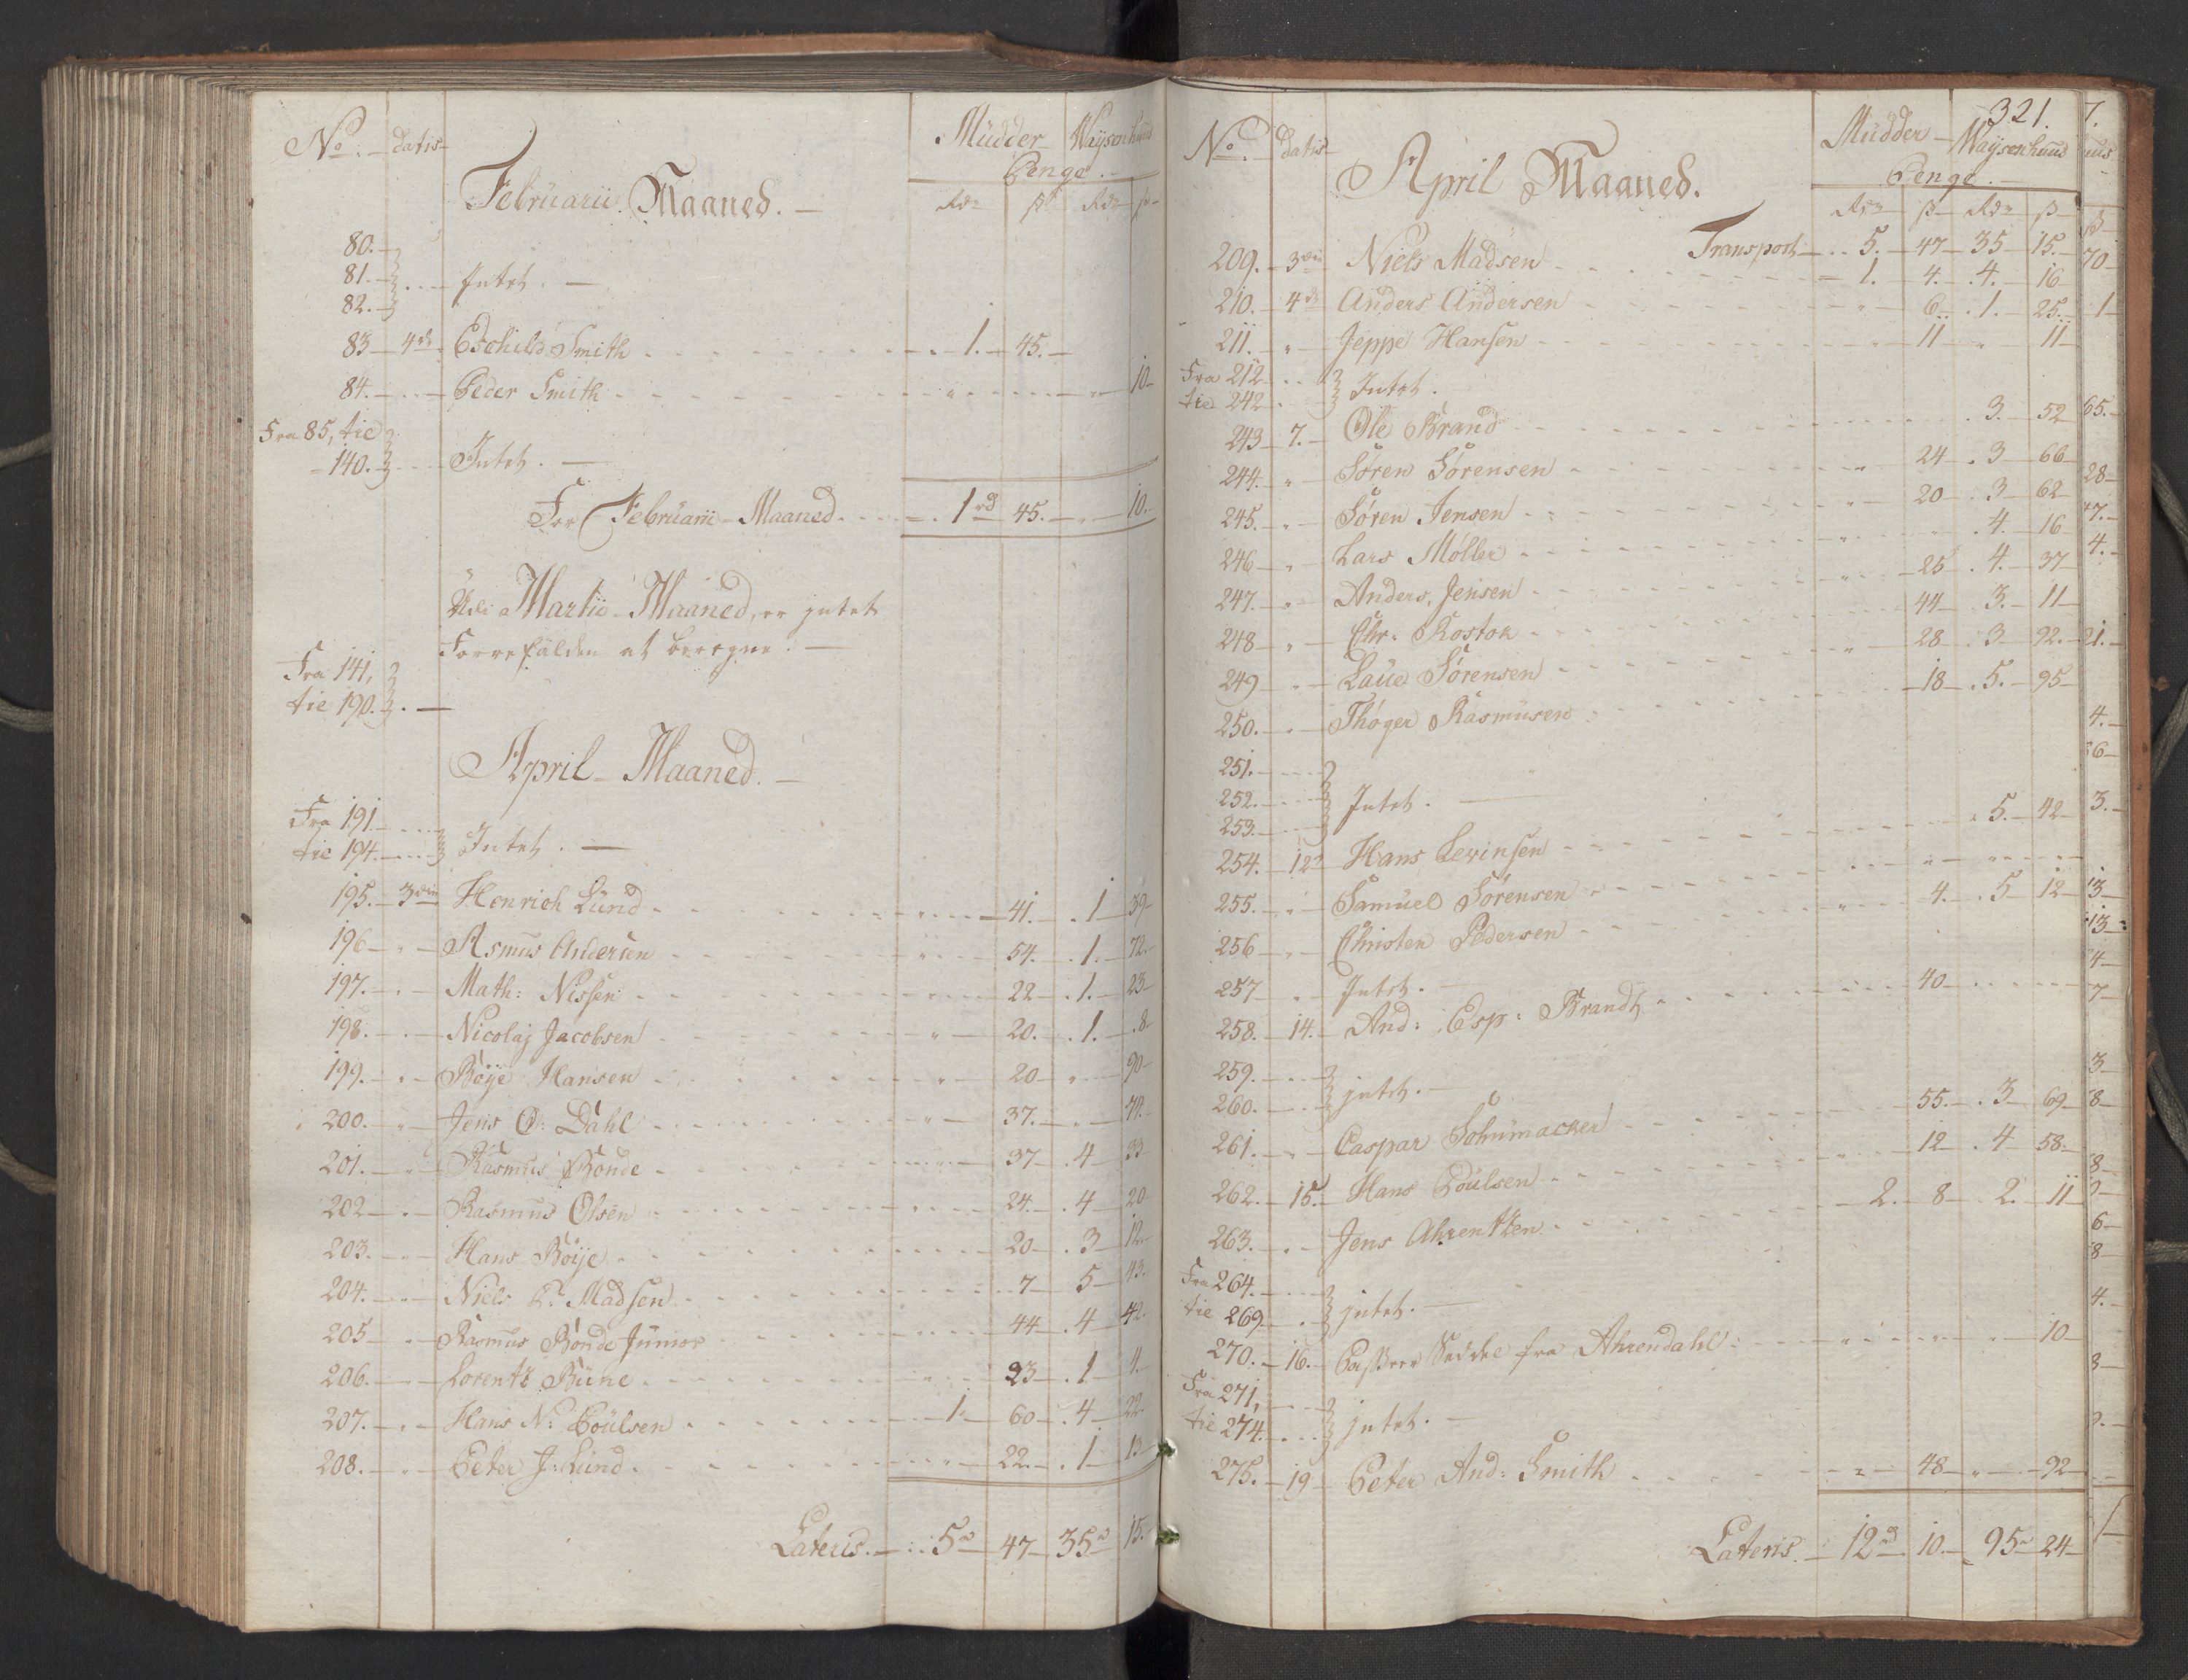 No. datis Müdder Waysenhuus
Penge.
Februarii Maaned. Rdr ß Rdr ß
80.
81. Intet.
82.
83 4de Eschild Smith 1. 45.
84. Peder Smith 10
Fra 85, tie
140. Intet.
For Februarii Maaned. 1rd 45. 10.
Udi Martii Maaned, er intet
Forrefalden at beregne.
Fra 141,
tie 190.
April Maaned.
Fra 191
tie 194. Intet.
195. 3die Henrich Lund 41. 1 39
196 Asmus Andersen 54. 1. 72.
197. Math: Nissen 22 1. 23
198. Nicolaj Jacobsen 20. 1. 8
199. Böye Hansen 20 90
200. Jens O: Dahl 37. 74.
201. Rasmus Bonde 37 4 33
202 Rasmus Olsen 24. 4 20
203. Hans Böije 20 3 12
204. Niels P. Madsen 7 5 43.
205 Rasmus Bonde Junior 44 4 42
206. Lorentz Büne 23 1 4
207. Hans N: Poulsen 1 60 4 22
208. Peter J: Lund 22 1 13
Lateris. 5 47 35 15.
321.
No. datis Müdder Waysenhuus
Penge.
April Maaned.
Rdr ß Rdr ß
Transport 5. 47 35 15.
209. 3die Niels Madsen 1. 4. 4. 16
210. 4de Anders Andersen 6. 1. 25.
211. Jeppe Hansen 11 11
Fra 212
tie 242 Intet.
243 7. Ole Brand 3. 52
244. Søren Sørensen 24 3 66
245. Søren Jensen 20 3 62
246 Lars Møller 4. 16
247. Anders Jensen 25 4. 37
248 Chr: Rostok 44 3. 11
249 Laue Sørensen 28 3 92.
250. Thøger Rasmusen 18 5. 95
251.
252. Intet.
253.
254. 12 Hans Levinsen 5. 42
255. Samuel Sørensen
256 Christen Pedersen 4. 5 12
257 Intet.
258. 14. And: Esp: Brandt 40
259.
260. intet.
261. Caspar Schumacker 55. 3 69
262. 15. Hans Poulsen 12 4 58
263. Jens Ahrentzen 2. 8 2. 11
Fra 264.
tie 269 intet.
270. 16. Passeer Seddel fra Ahrendahl 10
Fra 271,
tie 274. intet.
275. 19 Peter And: Smith 48 92
Lateris. 12 10. 95 24